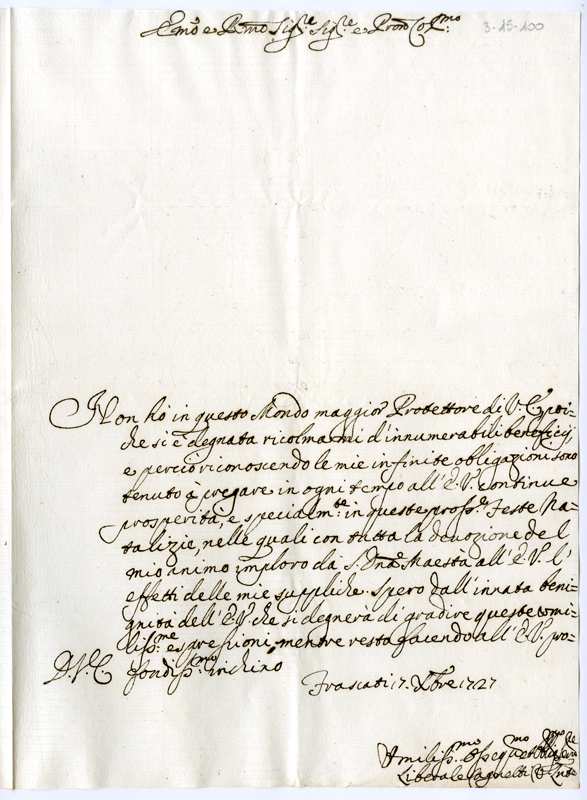 Emo e Rmo Sigre Sigre e Pron Colmo
3-15-100
Non hò in questo Mondo maggior Protettore di V. E. poi-
che si è degnata ricolmarmi d'innumerabili beneficij,
e perciò riconoscendo le mie infinite obligazioni sono
tenuto à pregare in ogni tempo all'E. V. continue
prosperità, e specialmte in queste prosse Feste Na-
talizie, nelle quali con tutta la devozione del
mio animo imploro dà S. Dna Maestà all'E. V. l'
effetti delle mie suppliche. Spero dall'innata beni-
gnità dell'E. V. che si degnerà di gradire queste umi-
lissme espressioni, mentre resta facendo all'E. V. pro-
fondissmo inchino
D. V. E.
Frascati 17. Xbre 1727
Umilissmo Ossequmo
Liberale